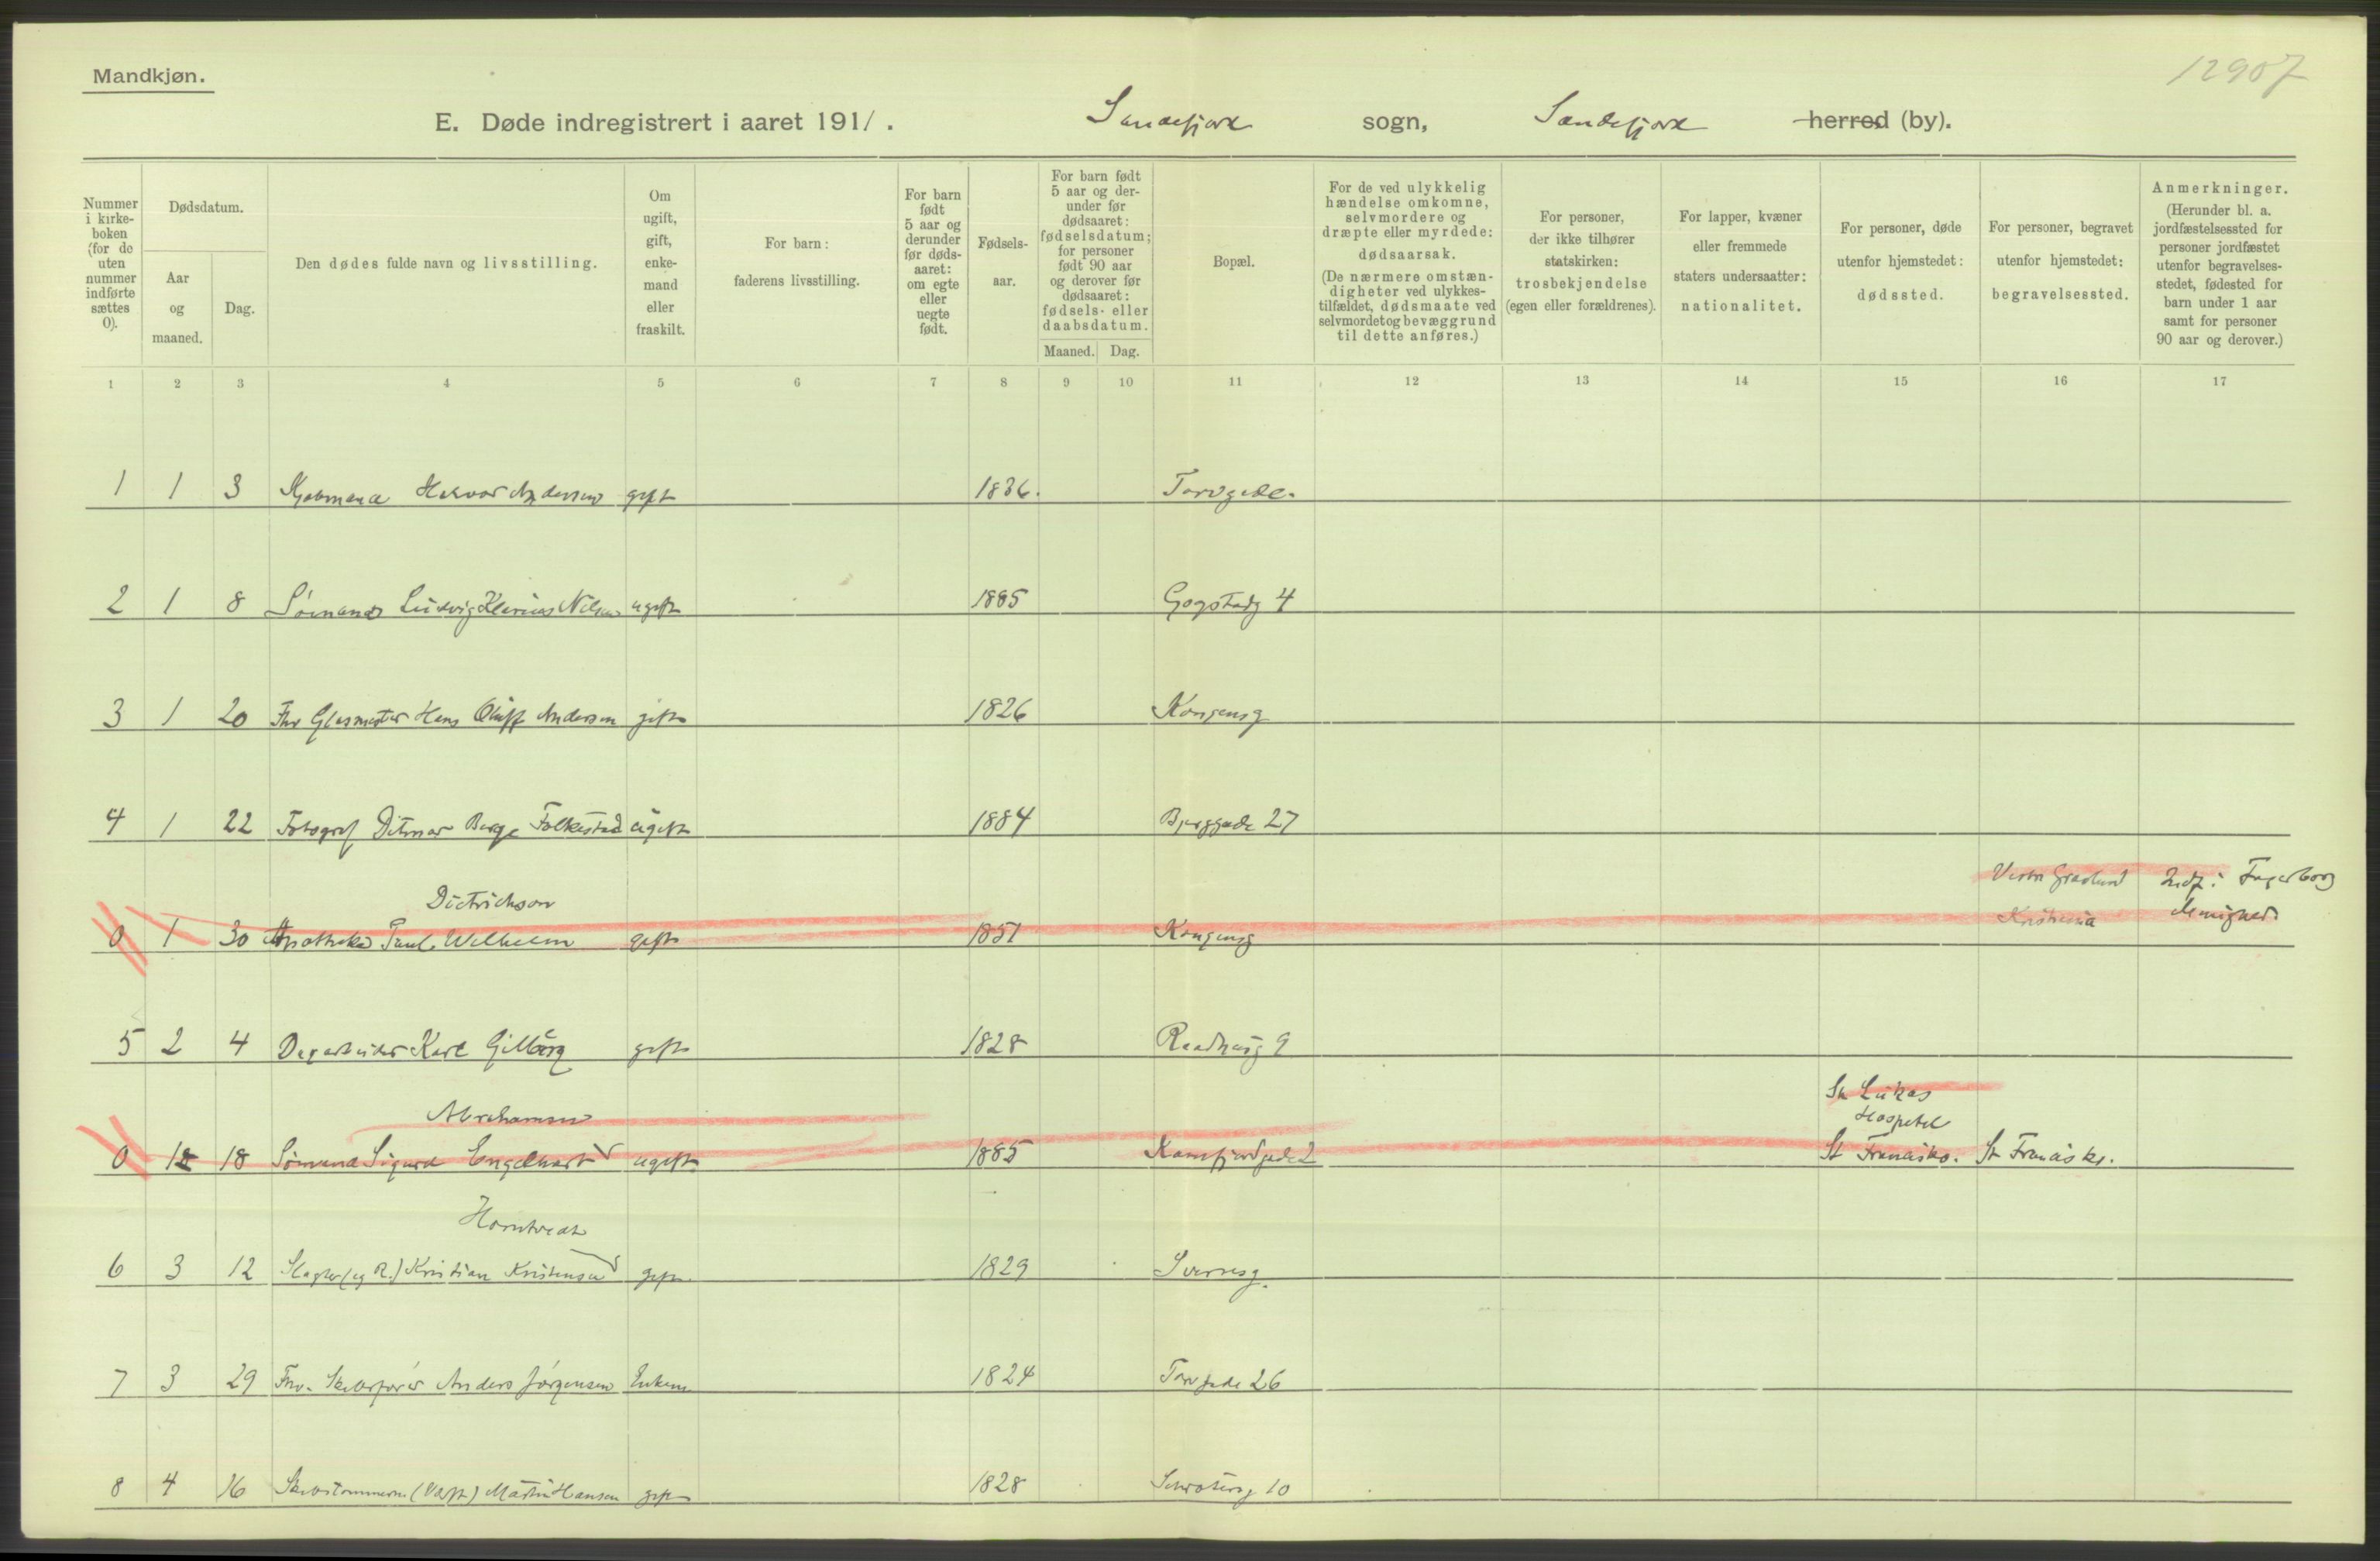 Mandkjøn.
12907
E. Døde indregistrert i aaret 1911. Sandefjord sogn, Sandefjord herred (by).
Nummer i kirkeboken (for de uten nummer indførte sættes 0).
Dødsdatum.
Aar og maaned.
Dag.
Den dødes fulde navn og livsstilling.
Om ugift, gift, enkemand eller fraskilt.
For barn: faderens livsstilling.
For barn født 5 aar og derunder før dødsaaret: om egte eller uegte født.
Fødselsaar.
For barn født 5 aar og derunder før dødsaaret: fødselsdatum; for personer født 90 aar og derover før dødsaaret: fødsels- eller daabsdatum.
Maaned. Dag.
Bopæl.
For de ved ulykkelig hændelse omkomne, selvmordere og dræpte eller myrdede: dødsaarsak. (De nærmere omstændigheter ved ulykkestilfældet, dødsmaate ved selvmordet og bevæggrund til dette anføres.)
For personer, der ikke tilhører statskirken: trosbekjendelse (egen eller forældrenes).
For lapper, kvæner eller fremmede staters undersaatter: nationalitet.
For personer, døde utenfor hjemstedet: dødssted.
For personer, begravet utenfor hjemstedet: begravelsessted.
Anmerkninger. (Herunder bl. a. jordfæstelsessted for personer jordfæstet utenfor begravelsesstedet, fødested for barn under 1 aar samt for personer 90 aar og derover.)
1 2 3 4 5 6 7 8 9 10 11 12 13 14 15 16 17
1 1 3 Kjøbmand Halvor Andersen gift 1836. Torvgade.
2 1 8 Sømand Ludvig Klerius Nilsen ugift 1885 Gogstadg 4
3 1 20 Fhv Glasmester Hans Oluff Andersen gift 1826 Kongensg
4 1 22 Fotograf Ditmar Berge Folkestad ugift 1884 Bjerggade 27
Dietrichson Vestre Gravlund Fagerborg
0 1 30 Apotheker Paul Wilhelm gift 1851 Kongensg Kristiania Menighed
5 2 4 Dagarbeider Karl Gillberg gift 1828 Raadhusg 9
Abrahamsen St Lukas
Hospital
0 12 18 Sømand Sigurd Engelhart ugift 1885 Kamfjordgade 2 St Francisko. St Francisko.
Horntvedt
6 3 12 Slagter (og R.) Kristian Kristensen gift 1829 Sverresg.
7 3 29 Fhv. Skibsfører Anders Jørgensen Enkem 1824 Torvgade 26
8 4 16 Skibstømmerm (Værft) Martin Hansen gift 1828 Schrøtersg 10